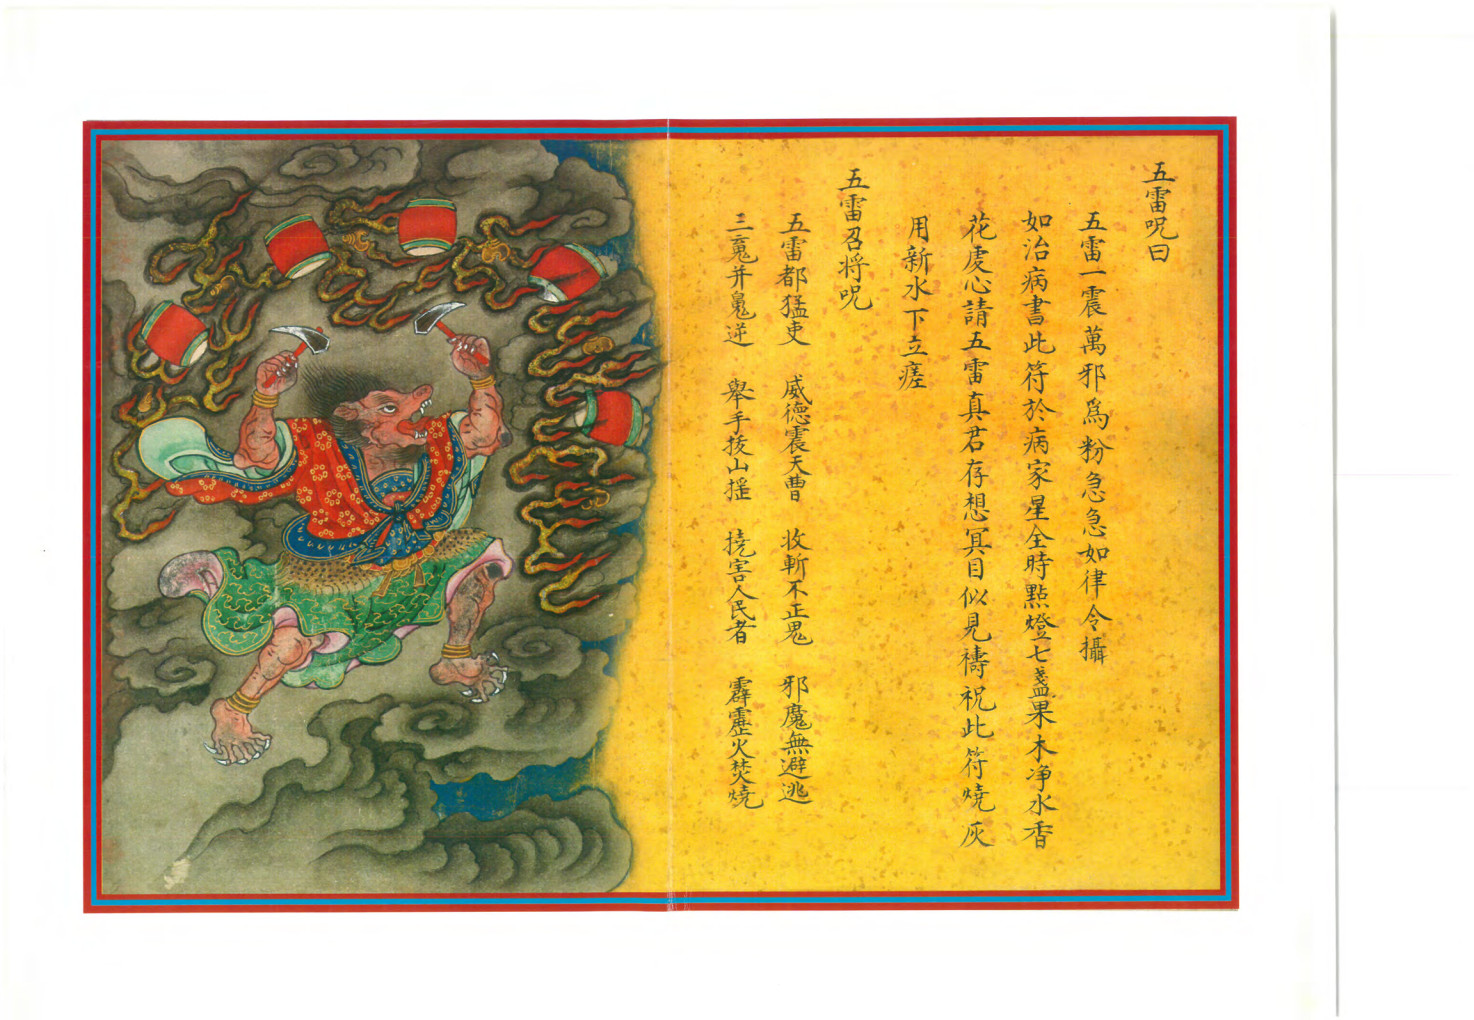 五雷呪曰
五雷一震萬邪爲粉急急如律令攝
如治病書此符於病家星全時點燈七盞果木净水香
花虔心請五雷真君存想冥目似見禱祝此符燒灰
用新水下立瘥
五雷召将呪
五雷都猛吏 威德震天曹 收斬不正鬼 邪魔無避逃
三䰟并鬼逆 舉手拔山摇 撓害人民者 霹靂火焚燒